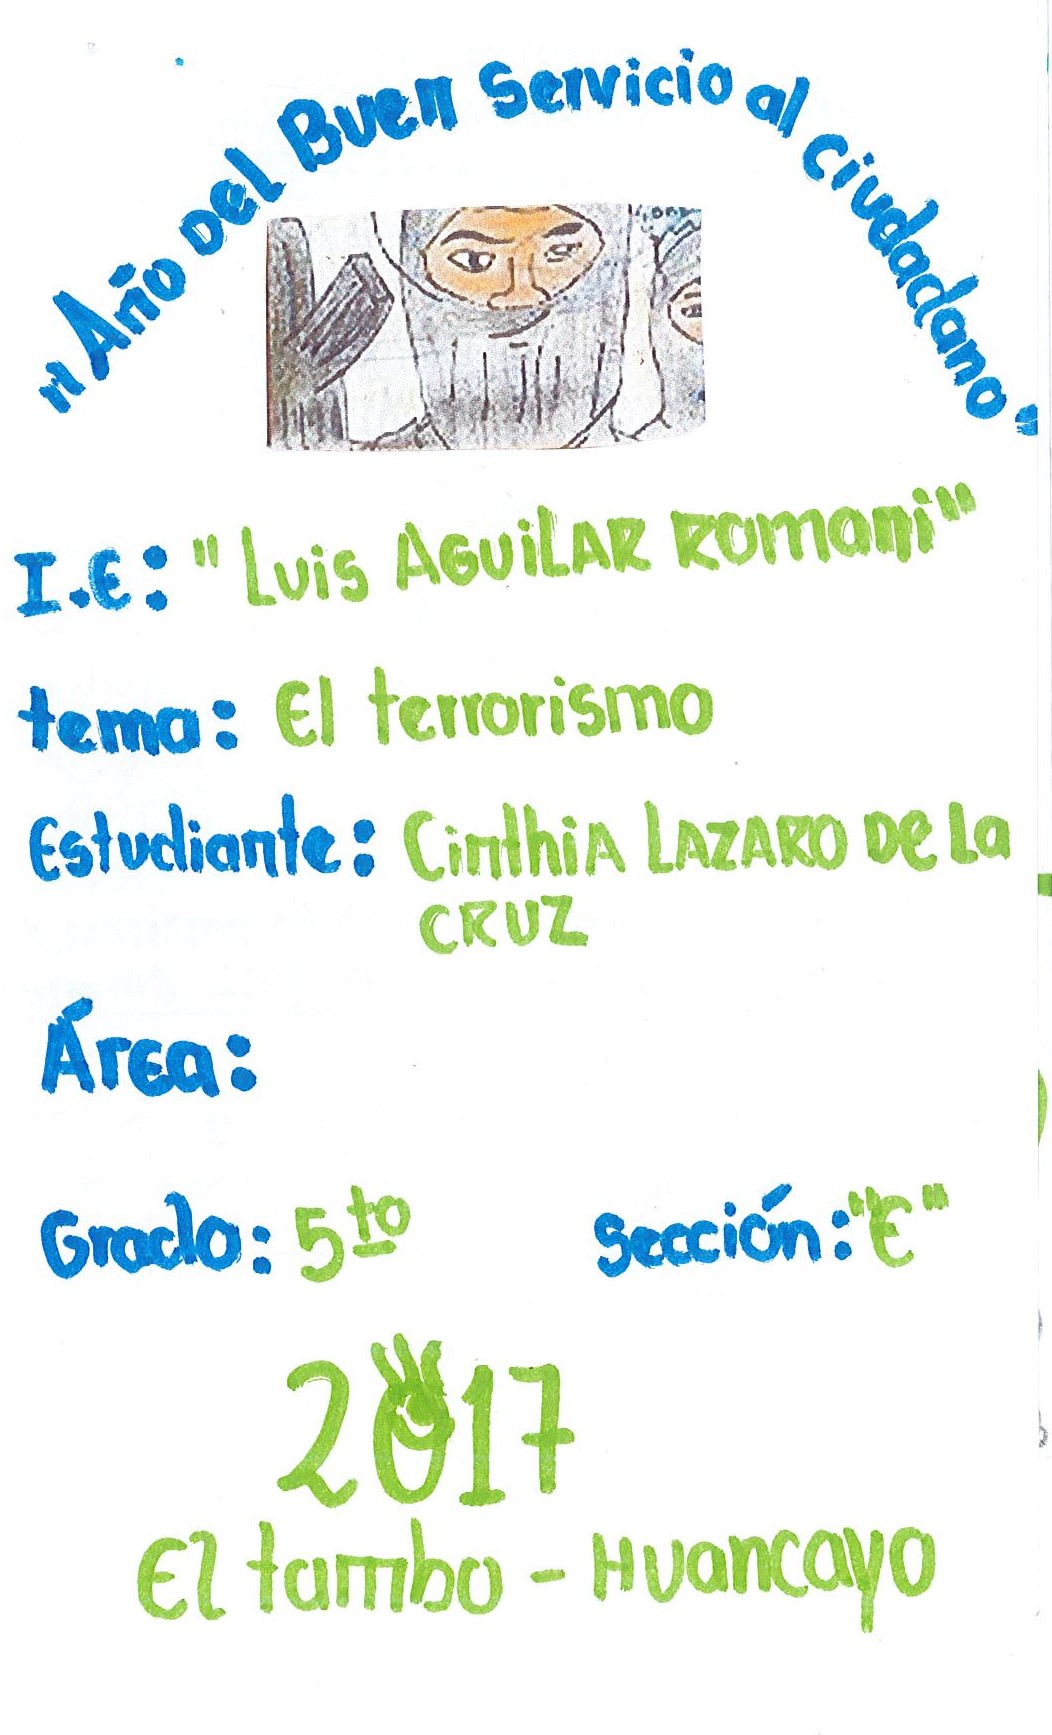 "Año Del Buen Servicio al ciudadano"
I.E: "Luis AGUiLAR Romani"
tema: El terrorismo
Estudiante: CinthiA LAZARO De La
CRUZ
Área:
Grado: 5to Sección: "E"
2017
El tambo - Huancayo